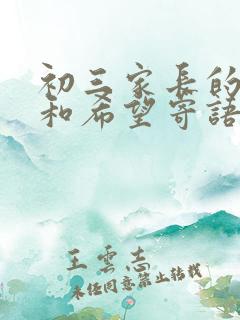 初三家長的
和希望寄語
王雲志
未經同意禁止轉載